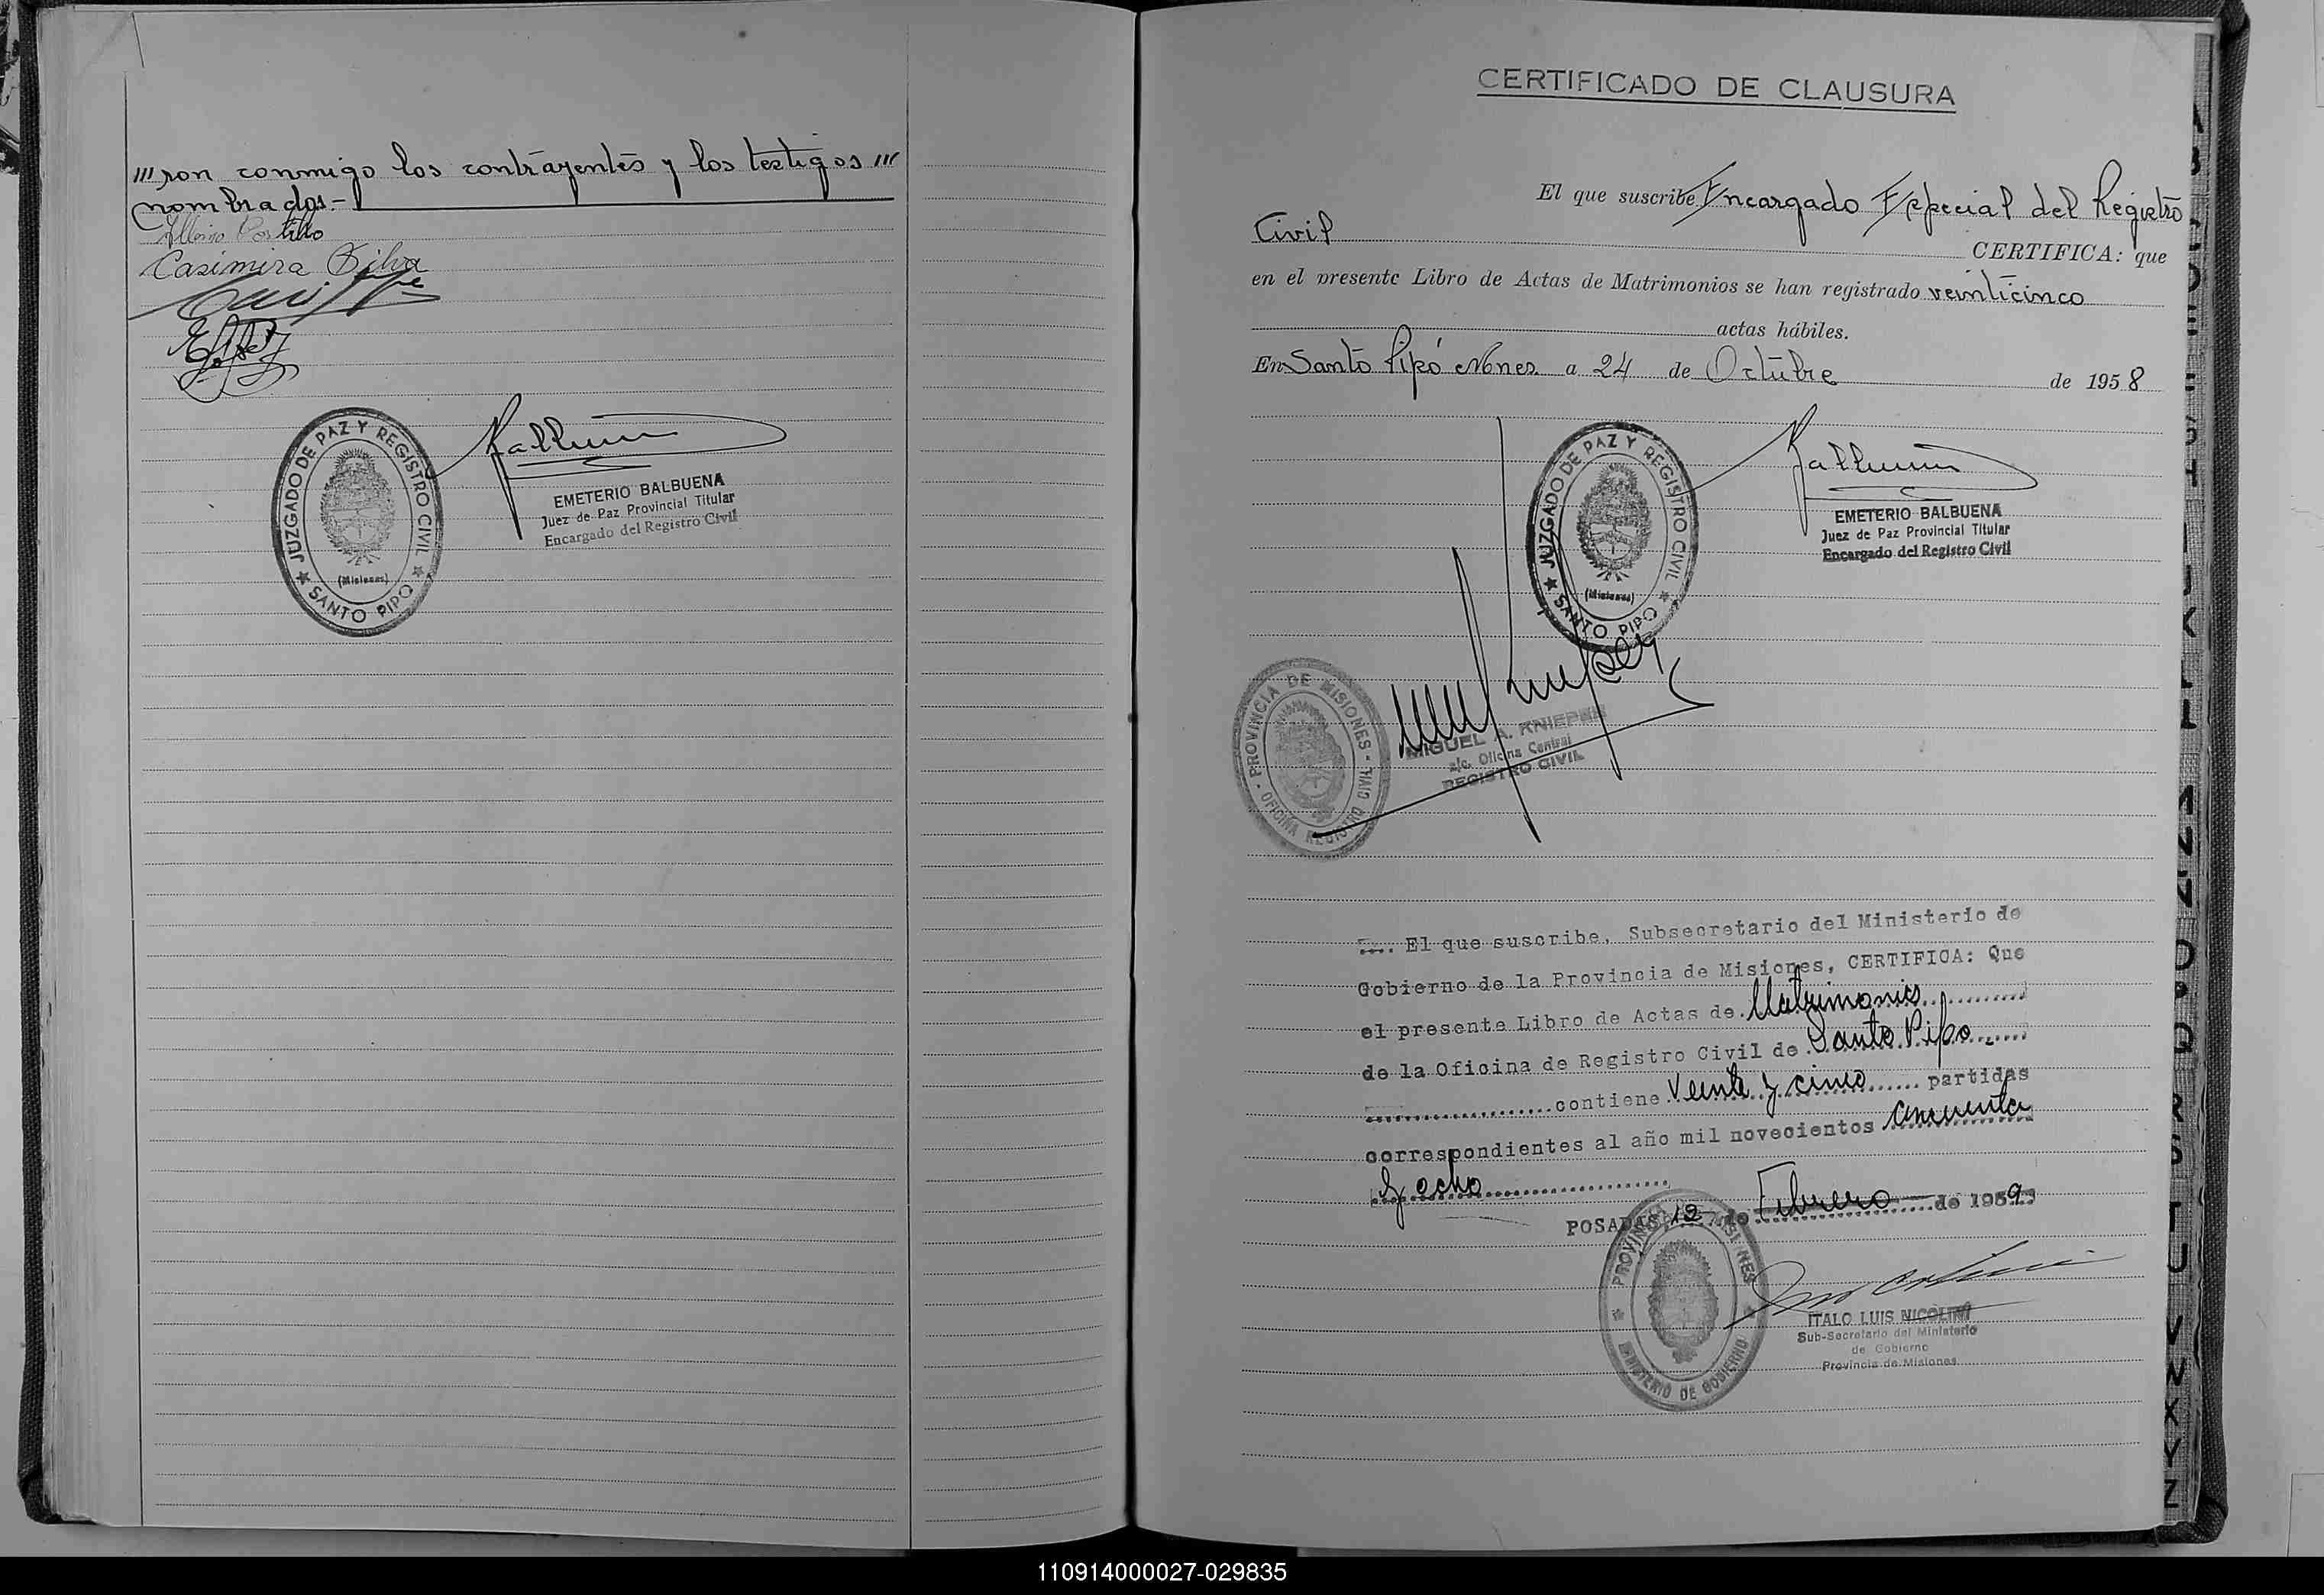 "' ron conmigo los contrayentes y los testigos "'
nombrados.-
Portillo
Casimira Silva
JUZGADO DE PAZ Y REGISTRO CIVIL
(Misiones)
SANTO PIPO
EMETERIO BALBUENA
Juez de Paz Provincial Titular
Encargado del Registro Civil
CERTIFICADO DE CLAUSURA
El que suscribe Encargado Especial del Registro
Civil
CERTIFICA: que
en el presente Libro de Actas de Matrimonios se han registrado veinticinco
actas hábiles.
En Santo Pipó Mnes. a 24 de Octubre de 1958
JUZGADO DE PAZ Y REGISTRO CIVIL
(Misiones)
SANTO PIPO
EMETERIO BALBUENA
Juez de Paz Provincial Titular
Encargado del Registro Civil
PROVINCIA DE MISIONES - OFICINA REGISTRO CIVIL
MIGUEL A. KNIEPER
a/c. Oficina Central
REGISTRO CIVIL
El que suscribe, Subsecretario del Ministerio de
Gobierno de la Provincia de Misiones, CERTIFICA: Que
el presente Libro de Actas de Matrimonios
de la Oficina de Registro Civil de Santo Pipo
contiene Veinte y cinco partidas
correspondientes al año mil novecientos cincuenta
y ocho
POSADAS, 12 de Febrero de 1959
PROVINCIA DE MISIONES
MINISTERIO DE GOBIERNO
ITALO LUIS NICOLINI
Sub-Secretario del Ministerio
de Gobierno
Provincia de Misiones
A
B
C
D
E
S
T
I
J
K
L
M
N
O
P
Q
R
S
T
U
V
W
X
Y
Z
110914000027-029835